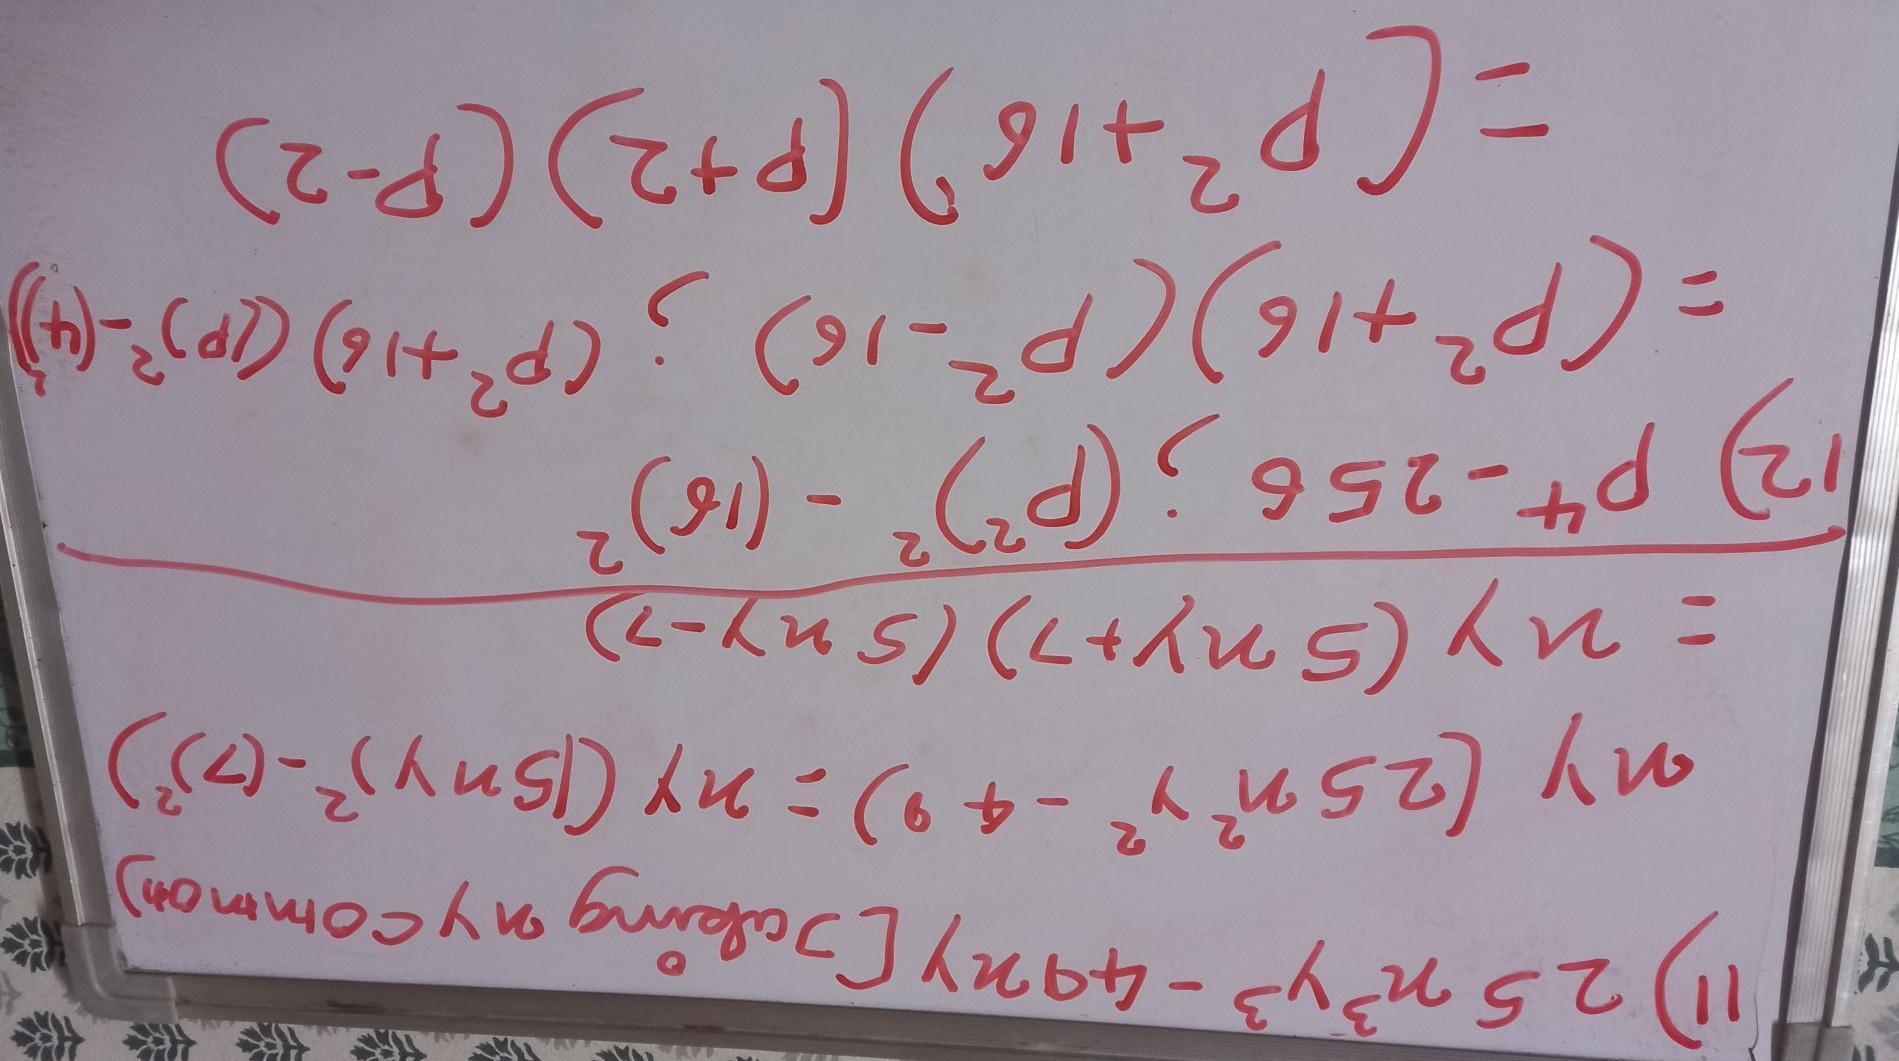 11) 25x³y³ - 49xy [Taking xy common]
xy (25x²y² - 49) = xy ((5xy)² - (7)²)
= xy (5xy+7) (5xy-7)
12) p⁴ - 256 ; (p²)² - (16)²
= (p² +16) (p² -16) ; (p² +16) ((p)² - (4)²)
= (p² +16) (p+2) (p-2)